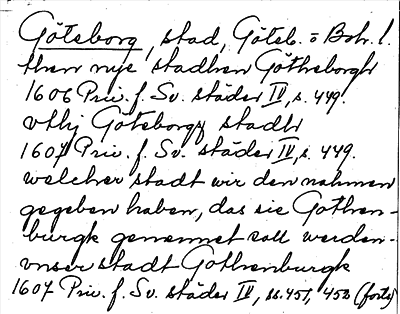 Göteborg, stad, Göteb. o Boh. l.
then nye stadhen Götheborgh
1606 Priv. f. Sv. städer IV, s. 449.
vthj Göteborgz stadh
1607 Priv. f. Sv. städer IV, s. 449.
welcher stadt wir den nahmen
gegeben haben, das sie Gothen-
burgk gennennet soll werden -
vnser stadt Gothenburgk
1607 Priv. f. Sv. städer IV, ss. 451, 453 (forts)